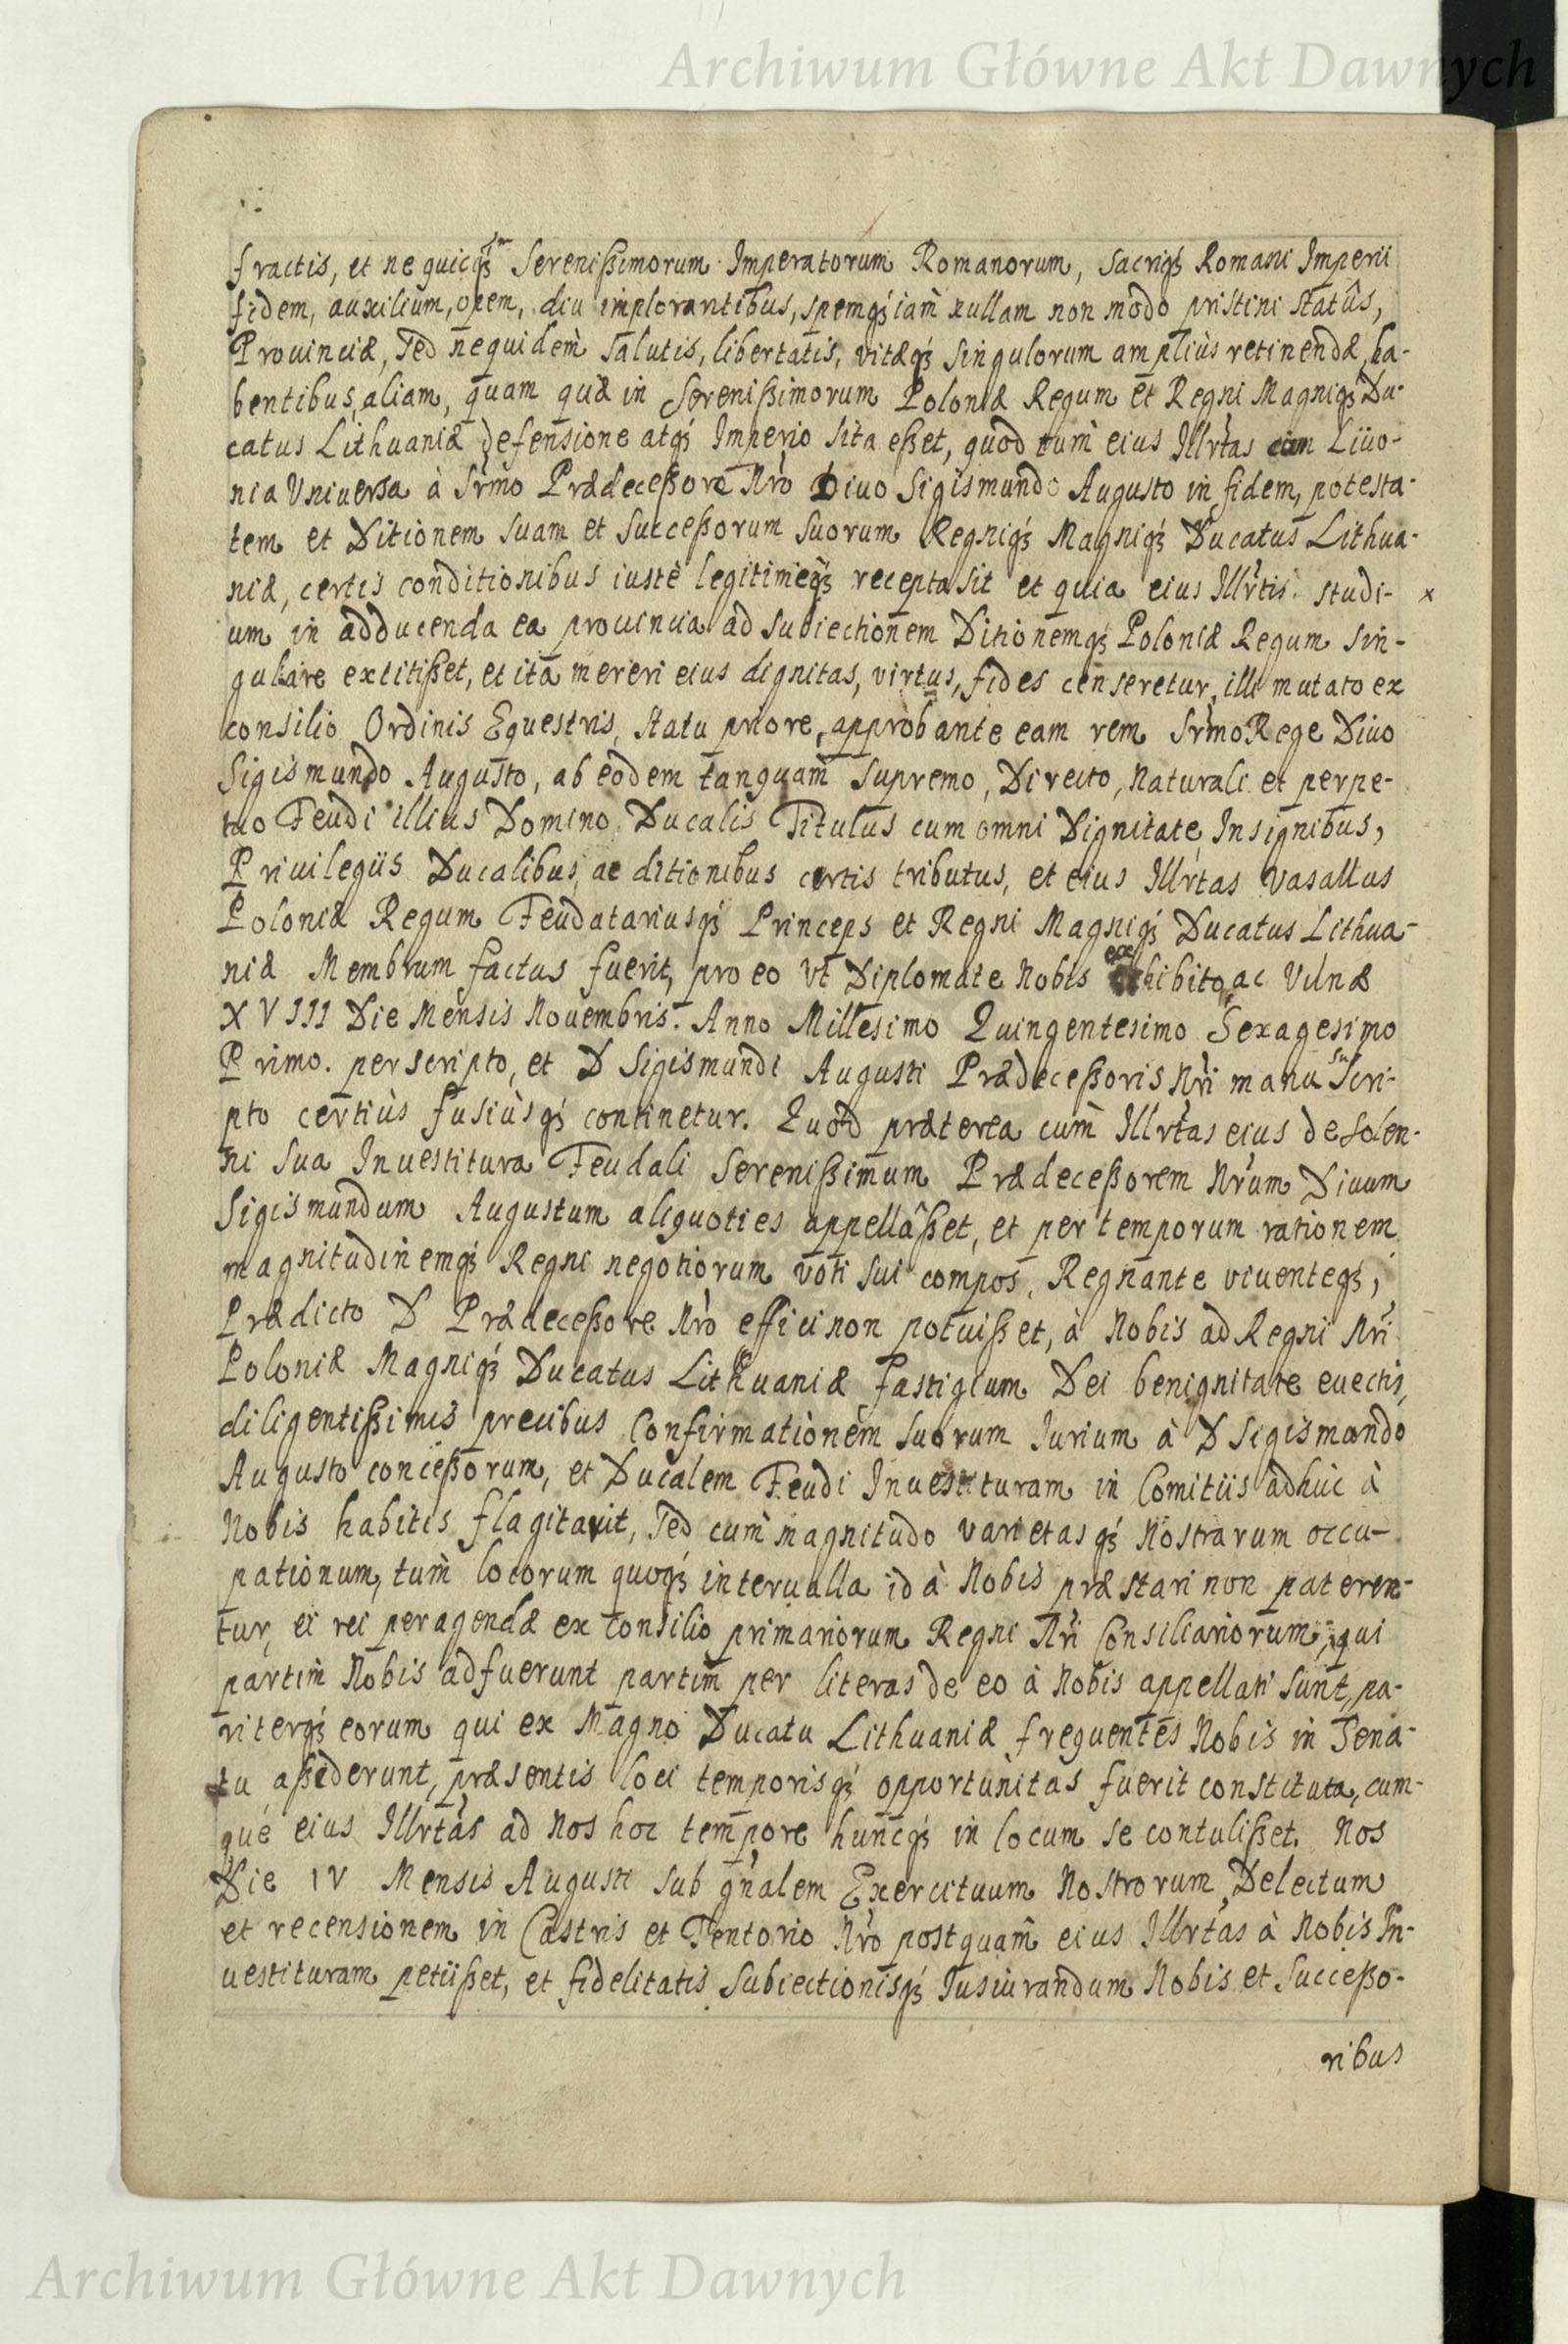 Archiwum Główne Akt Dawnych
fractis, et ne quicq₃ Serenissimorum Imperatorum Romanorum, Sacriq₃ Romani Imperii
fidem, auxilium, opem, diu implorantibus, spemq₃ iam̀ nullam non modo pristini statûs,
Prouinciæ, sed nequidem̀ salutis, libertatis, vitæq₃ singulorum ampliùs retinendæ, ha-
bentibus, aliam, quam quæ in Serenissimorum Poloniæ Regum et Regni Magniq₃ Du-
catus Lithuaniæ defensione atq₃ Imperio sita esset, quod tum̀ eius Illrtas cum Liuo-
nia Vniuersa à Srmo Prædecessore Nro Diuo Sigismundo Augusto in fidem, potesta-
tem et Ditionem suam et Successorum suorum Regniq₃ Magniq₃ Ducatus Lithua-
niæ, certis conditionibus iustè legitimeq₃ recepta sit et quia eius Illrtis studi- x
um in adducenda ea prouincia ad subiectionem Ditionemq₃ Poloniæ Regum sin-
gulare extitisset, et ita mereri eius dignitas, virtus, fides censeretur, illi mutato ex
consilio Ordinis Equestris, statu priore, approbante eam rem Srmo Rege Diuo
Sigismundo Augusto, ab eodem tanquam̀ Supremo, Directo, Naturali et perpe-
tuo Feudi illius Domino, Ducalis Titulus cum omni Dignitate, Insignibus,
Priuilegiis Ducalibus, ac ditionibus certis tributus, et eius Illrtas Vasallus
Poloniæ Regum Feudatariusq₃ Princeps et Regni Magniq₃ Ducatus Lithua-
niæ Membrum factus fuerit, pro eo vt Diplomate Nobis exhibito, ac Vilnæ
XVIII Die Mensis Nouembris. Anno Millesimo Quingentesimo Sexagesimo
Primo. perscripto, et D Sigismundi Augusti Prædecessoris Nri manu suscri-
pto certiùs fusiùsq₃ continetur. Quod præterea cum̀ Illrtas eius de solen-
ni sua Inuestitura Feudali Serenissimum Prædecessorem Nrum Diuum
Sigismundum Augustum aliquoties appellâsset, et per temporum rationem
magnitudinemq₃ Regni negotiorum voti sui compos, Regnante viuenteq₃,
Prædicto D Prædecessore Nro effici non potuisset, à Nobis ad Regni Nri
Poloniæ Magniq₃ Ducatus Lithuaniæ fastigium Dei benignitate euectis,
diligentissimis precibus Confirmationem suorum Iurium à D Sigismundo
Augusto concessorum, et Ducalem Feudi Inuestituram in Comitiis adhuc à
Nobis habitis flagitauit, sed cum̀ magnitudo varietasq₃ Nostrarum occu-
pationum, tum̀ locorum quoq₃ interualla id à Nobis præstari non pateren-
tur, ei rei peragendæ ex consilio primariorum Regni Nri Consiliariorum, qui
partim Nobis adfuerunt partim per literas de eo à Nobis appellati sunt, pa-
riterq₃ eorum qui ex Magno Ducatu Lithuaniæ frequentes Nobis in Sena-
tu assederunt, præsentis loci temporisq₃ opportunitas fuerit constituta, cum-
què eius Illrtas ad Nos hoc tempore huncq₃ in locum se contulisset. Nos
Die IV Mensis Augusti sub gnalem Exercituum Nostrorum Delectum
et recensionem in Castris et Tentorio Nro postquam̀ eius Illrtas à Nobis In-
uestituram petiisset, et fidelitatis Subiectionisq₃ Iusiurandum Nobis et Successo-
ribus
Archiwum Główne Akt Dawnych